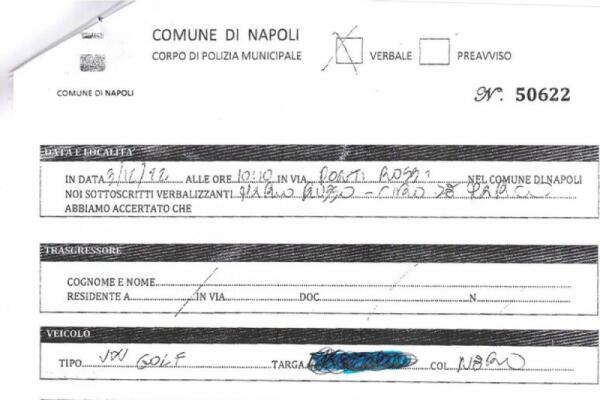 COMUNE DI NAPOLI
CORPO DI POLIZIA MUNICIPALE
VERBALE PREAVVISO
COMUNE DI NAPOLI
N. 50622
DATA E LOCALITA'
IN DATA 3/12/22 ALLE ORE 10:10 IN VIA PONTI ROSSI NEL COMUNE DI NAPOLI
NOI SOTTOSCRITTI VERBALIZZANTI RUSSO - CIRO
ABBIAMO ACCERTATO CHE
TRASGRESSORE
COGNOME E NOME
RESIDENTE A IN VIA DOC N
VEICOLO
TIPO VW GOLF TARGA COL NERO